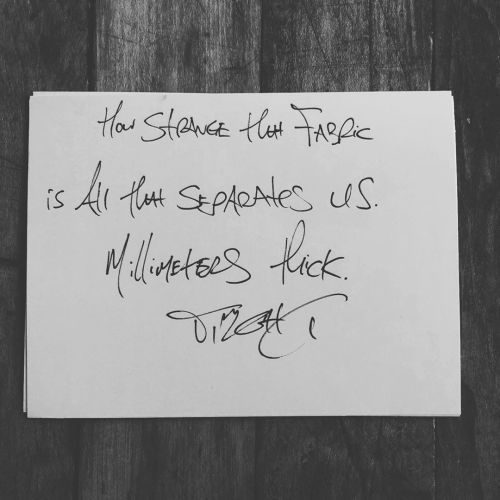 How Strange that Fabric
is All that Separates us.
Millimeters thick.